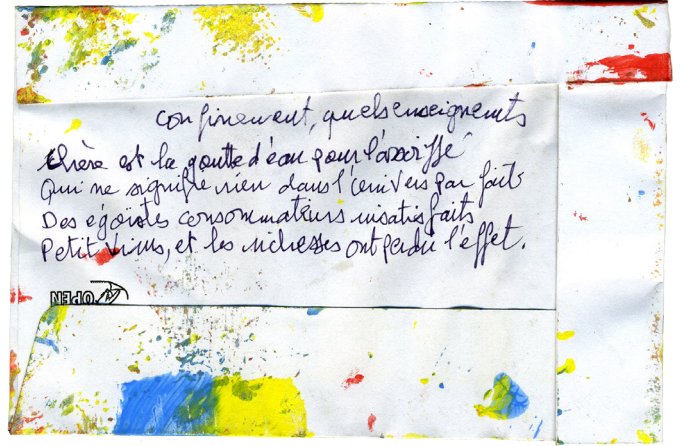 Confinement, quels enseignements
Chère est la goutte d'eau pour l'assoiffé
Qui ne signifie rien dans l'univers parfait
Des égoïstes consommateurs insatisfaits
Petit virus, et les richesses ont perdu l'effet.
OPEN